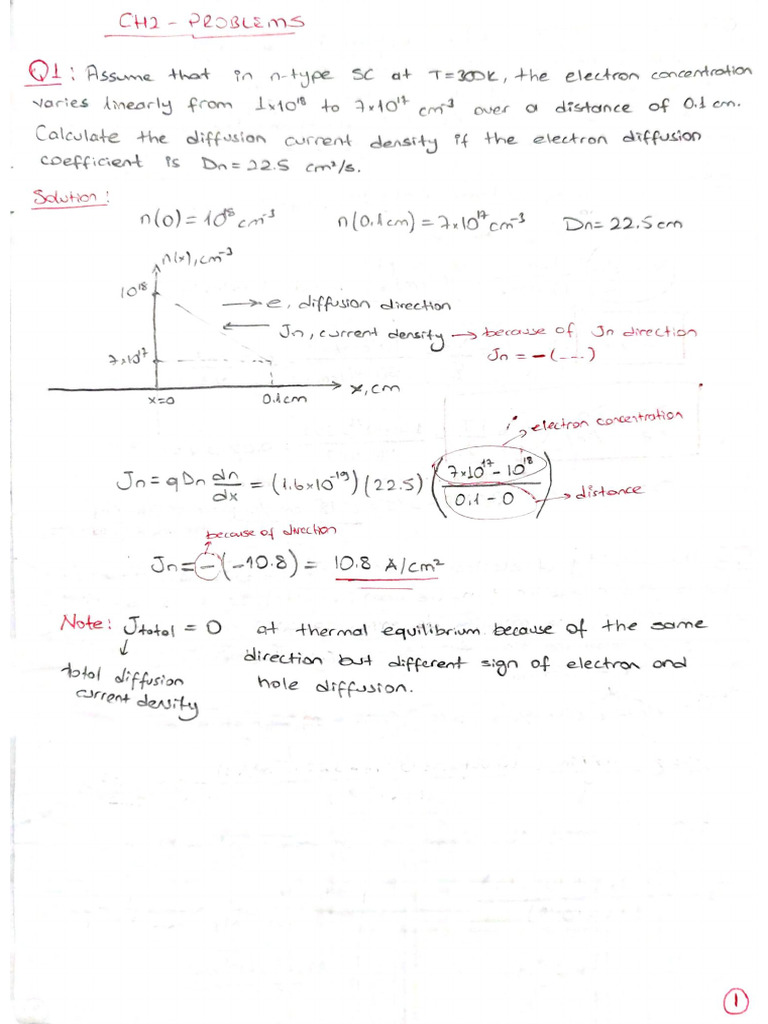 CH2 - PROBLEMS
Q1: Assume that in n-type SC at T=300K, the electron concentration
varies linearly from 1x10¹⁸ to 7x10¹⁷ cm⁻³ over a distance of 0.1 cm.
Calculate the diffusion current density if the electron diffusion
coefficient is Dn = 22.5 cm²/s.
Solution:
n(0) = 10¹⁸ cm⁻³ n(0.1cm) = 7x10¹⁷ cm⁻³ Dn = 22.5cm
n(x), cm⁻³
10¹⁸
→ e, diffusion direction
← Jn, current density → because of Jn direction
Jn = -(---)
7x10¹⁷
x=0 0.1cm x, cm
electron concentration
Jn = qDn dn/dx = (1.6x10⁻¹⁹)(22.5) ((7x10¹⁷ - 10¹⁸)/(0.1 - 0)) → distance
because of direction
Jn = -(-10.8) = 10.8 A/cm²
Note: Jtotal = 0 at thermal equilibrium because of the same
direction but different sign of electron and
hole diffusion.
total diffusion
current density
1